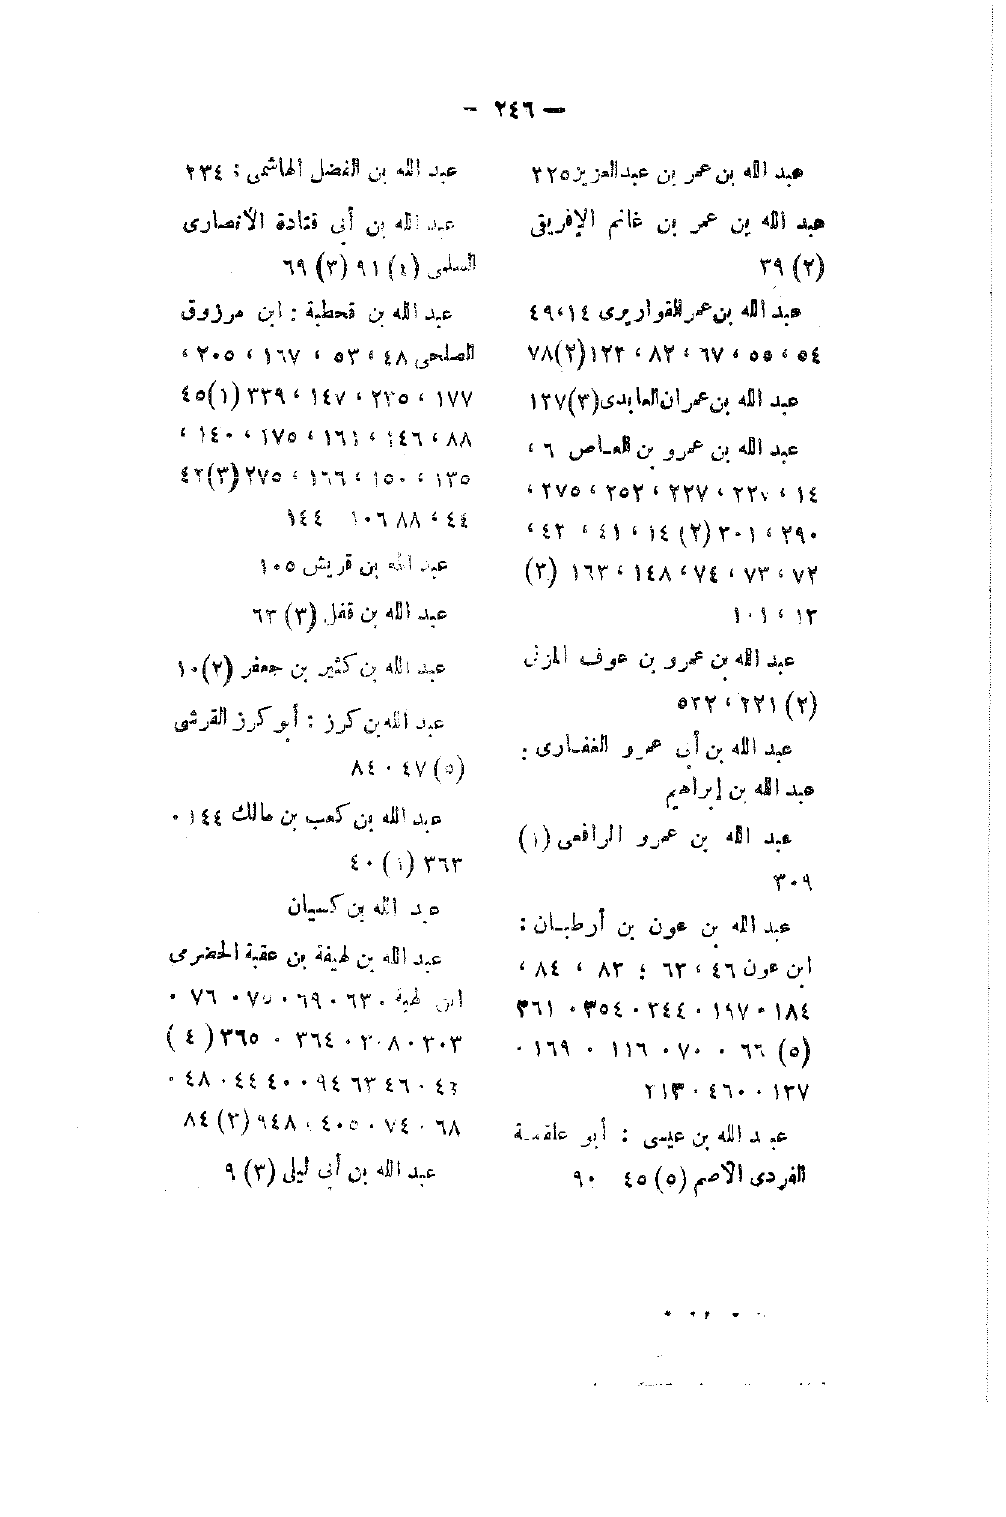 — ٢٤٦ —
عبد الله بن عمر بن عبدالعزيز ٢٢٥
عبد الله بن عمر بن غانم الإفريقى
(٢) ٣٩
عبد الله بن عمر القواريرى ١٤، ٤٩
٥٤ ، ٥٥ ، ٦٧ ، ٨٢ ، ١٢٢(٢) ٧٨
عبد الله بن عمران العابدى(٣)١٢٧
عبد الله بن عمرو بن العاص ٦ ،
١٤ ، ٢٢٠ ، ٢٢٧ ، ٢٥٢ ، ٢٧٥ ،
٢٩٠ ، ٣٠١ (٢) ١٤ ، ٤١ ، ٤٢ ،
٧٢ ، ٧٣ ، ٧٤ ، ١٤٨ ، ١٦٣ (٣)
١٣ ، ١٠١
عبد الله بن عمرو بن عوف المزنى
(٢) ٢٢١ ، ٥٢٢
عبد الله بن أبى عمرو الغفارى :
عبد الله بن إبراهيم
عبد الله بن عمرو الرافعى (١)
٣٠٩
عبد الله بن عون بن أرطبان :
ابن عون ٤٦ ، ٦٣ ، ٨٣ ، ٨٤ ،
١٨٤ ، ١٩٧ ، ٢٤٤ ، ٣٥٤ ، ٣٦١
(٥) ٦٦ ، ٧٠ ، ١١٦ ، ١٦٩ ،
١٣٧ ، ٤٦٠ ، ٢١٣
عبد الله بن عيسى : أبو علقمة
الفردى الأصم (٥) ٤٥ ٩٠
عبد الله بن الفضل الهاشمى : ٢٣٤
عبد الله بن أبى قتادة الأنصارى
السلمى (٤) ٩١ (٣) ٦٩
عبد الله بن قحطبة : ابن مرزوق
الصلحى ٤٨ ، ٥٣ ، ١٦٧ ، ٢٠٥ ،
١٧٧ ، ٢٣٥ ، ١٤٧ ، ٣٣٩ (١) ٤٥
٨٨ ، ١٤٦ ، ١٦١ ، ١٧٥ ، ١٤٠ ،
١٣٥ ، ١٥٠ ، ١٦٦ ، ٢٧٥ (٣) ٤٢
٤٤ ، ٨٨ ١٠٦ ١٤٤
عبد الله بن قريش ١٠٥
عبد الله بن قفل (٣) ٦٣
عبد الله بن كثير بن جعفر (٢) ١٠
عبد الله بن كرز : أبو كرز القرشى
(٥) ٤٧ ، ٨٤
عبد الله بن كعب بن مالك ١٤٤ ،
٣٦٣ (١) ٤٠
عبد الله بن كسيان
عبد الله بن لهيفة بن عقبة الحضرمى
ابن لهية ، ٦٣ ، ٦٩ ، ٧٥ ، ٧٦ ،
٣٠٣ ، ٣٠٨ ، ٣٦٤ ، ٣٦٥ (٤)
٤٣ ، ٤٦ ٦٣ ٩٤ ، ٤٠ ٤٤ ، ٤٨ ،
٦٨ ، ٧٤ ، ٤٠٥ ، ٩٤٨ (٢) ٨٤
عبد الله بن أبى ليلى (٣) ٩